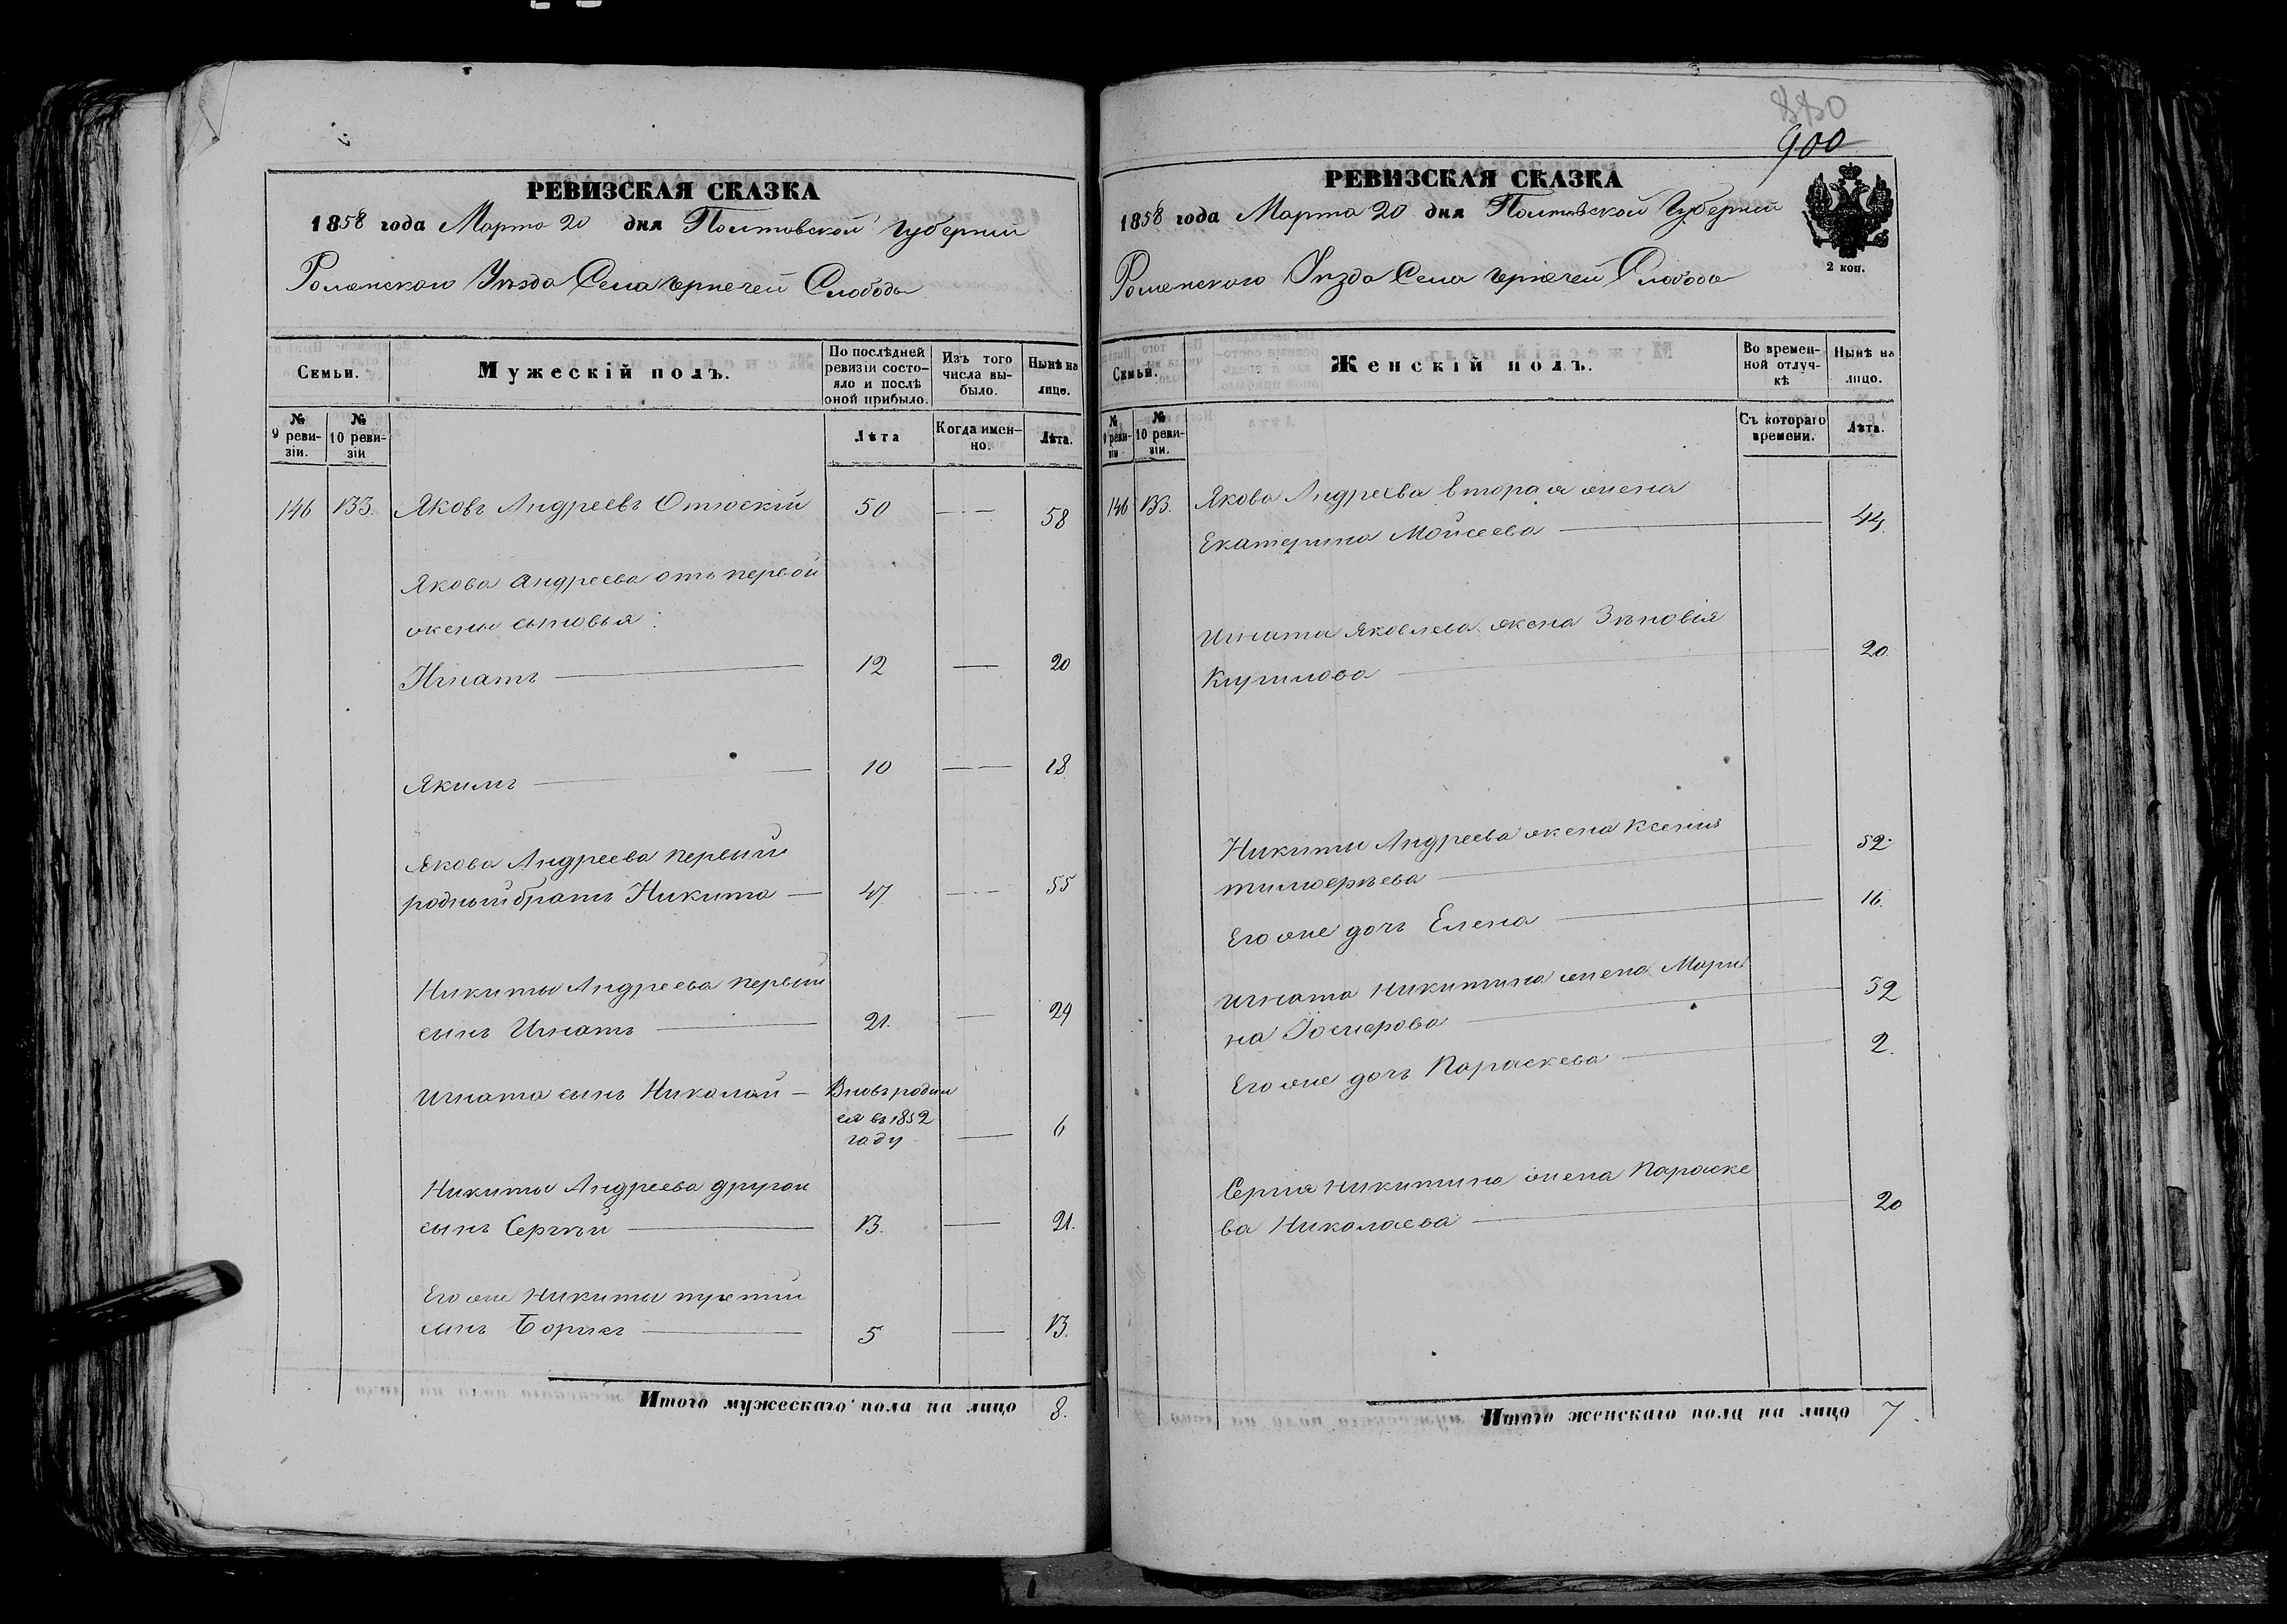 РЕВИЗСКАЯ СКАЗКА
1858 года Марта 20 дня Полтавской Губерніи
Роменскаго Уѣзда Села Чернечей Слободы
Семьи.
Мужескій полъ.
По послѣдней ревизіи состояло и послѣ оной прибыло.
Изъ того числа выбыло.
Нынѣ на лицо.
№ 9 ревизіи.
№ 10 ревизіи
Лѣта
Когда именно.
Лѣта.
146 133. Яковъ Андреевъ 50 58
Якова Андреева отъ первой
жены сыновья:
Игнатъ 12 20
Якимъ 10 18
Якова Андреева первый
родный братъ Никита 47 55
Никиты Андреева первый
сынъ Игнатъ 21. 29
Игната сынъ Николай Вновь родил
ся въ 1852
году 6
Никиты Андреева другой
сынъ Сергѣй 13. 21.
Его же Никиты третій
сынъ Борисъ 5 13.
Итого мужескаго пола на лицо 8.
880
900
РЕВИЗСКАЯ СКАЗКА
1858 года Марта 20 дня Полтавской Губерніи
2 коп.
Роменскаго Уѣзда Села Чернечей Слободы
Семьи.
Женскій полъ.
Во временной отлучкѣ
Нынѣ на лицо.
№ 9 ревизіи
№ 10 ревизіи.
Съ котораго времени.
Лѣта.
146 133. Якова Андреева вторая жена
Екатерина Моисеева 44.
Игната Яковлева жена Зѣновія
Кирилова 20.
Никиты Андреева жена Ксенія
Тимоѳеѣева 52.
Его же дочь Елена 16.
Игната Никитина жена Мари
на 32
Его же дочь Параскева 2.
Сергія Никитина жена Параске
ва Николаева 20
Итого женскаго пола на лицо 7.